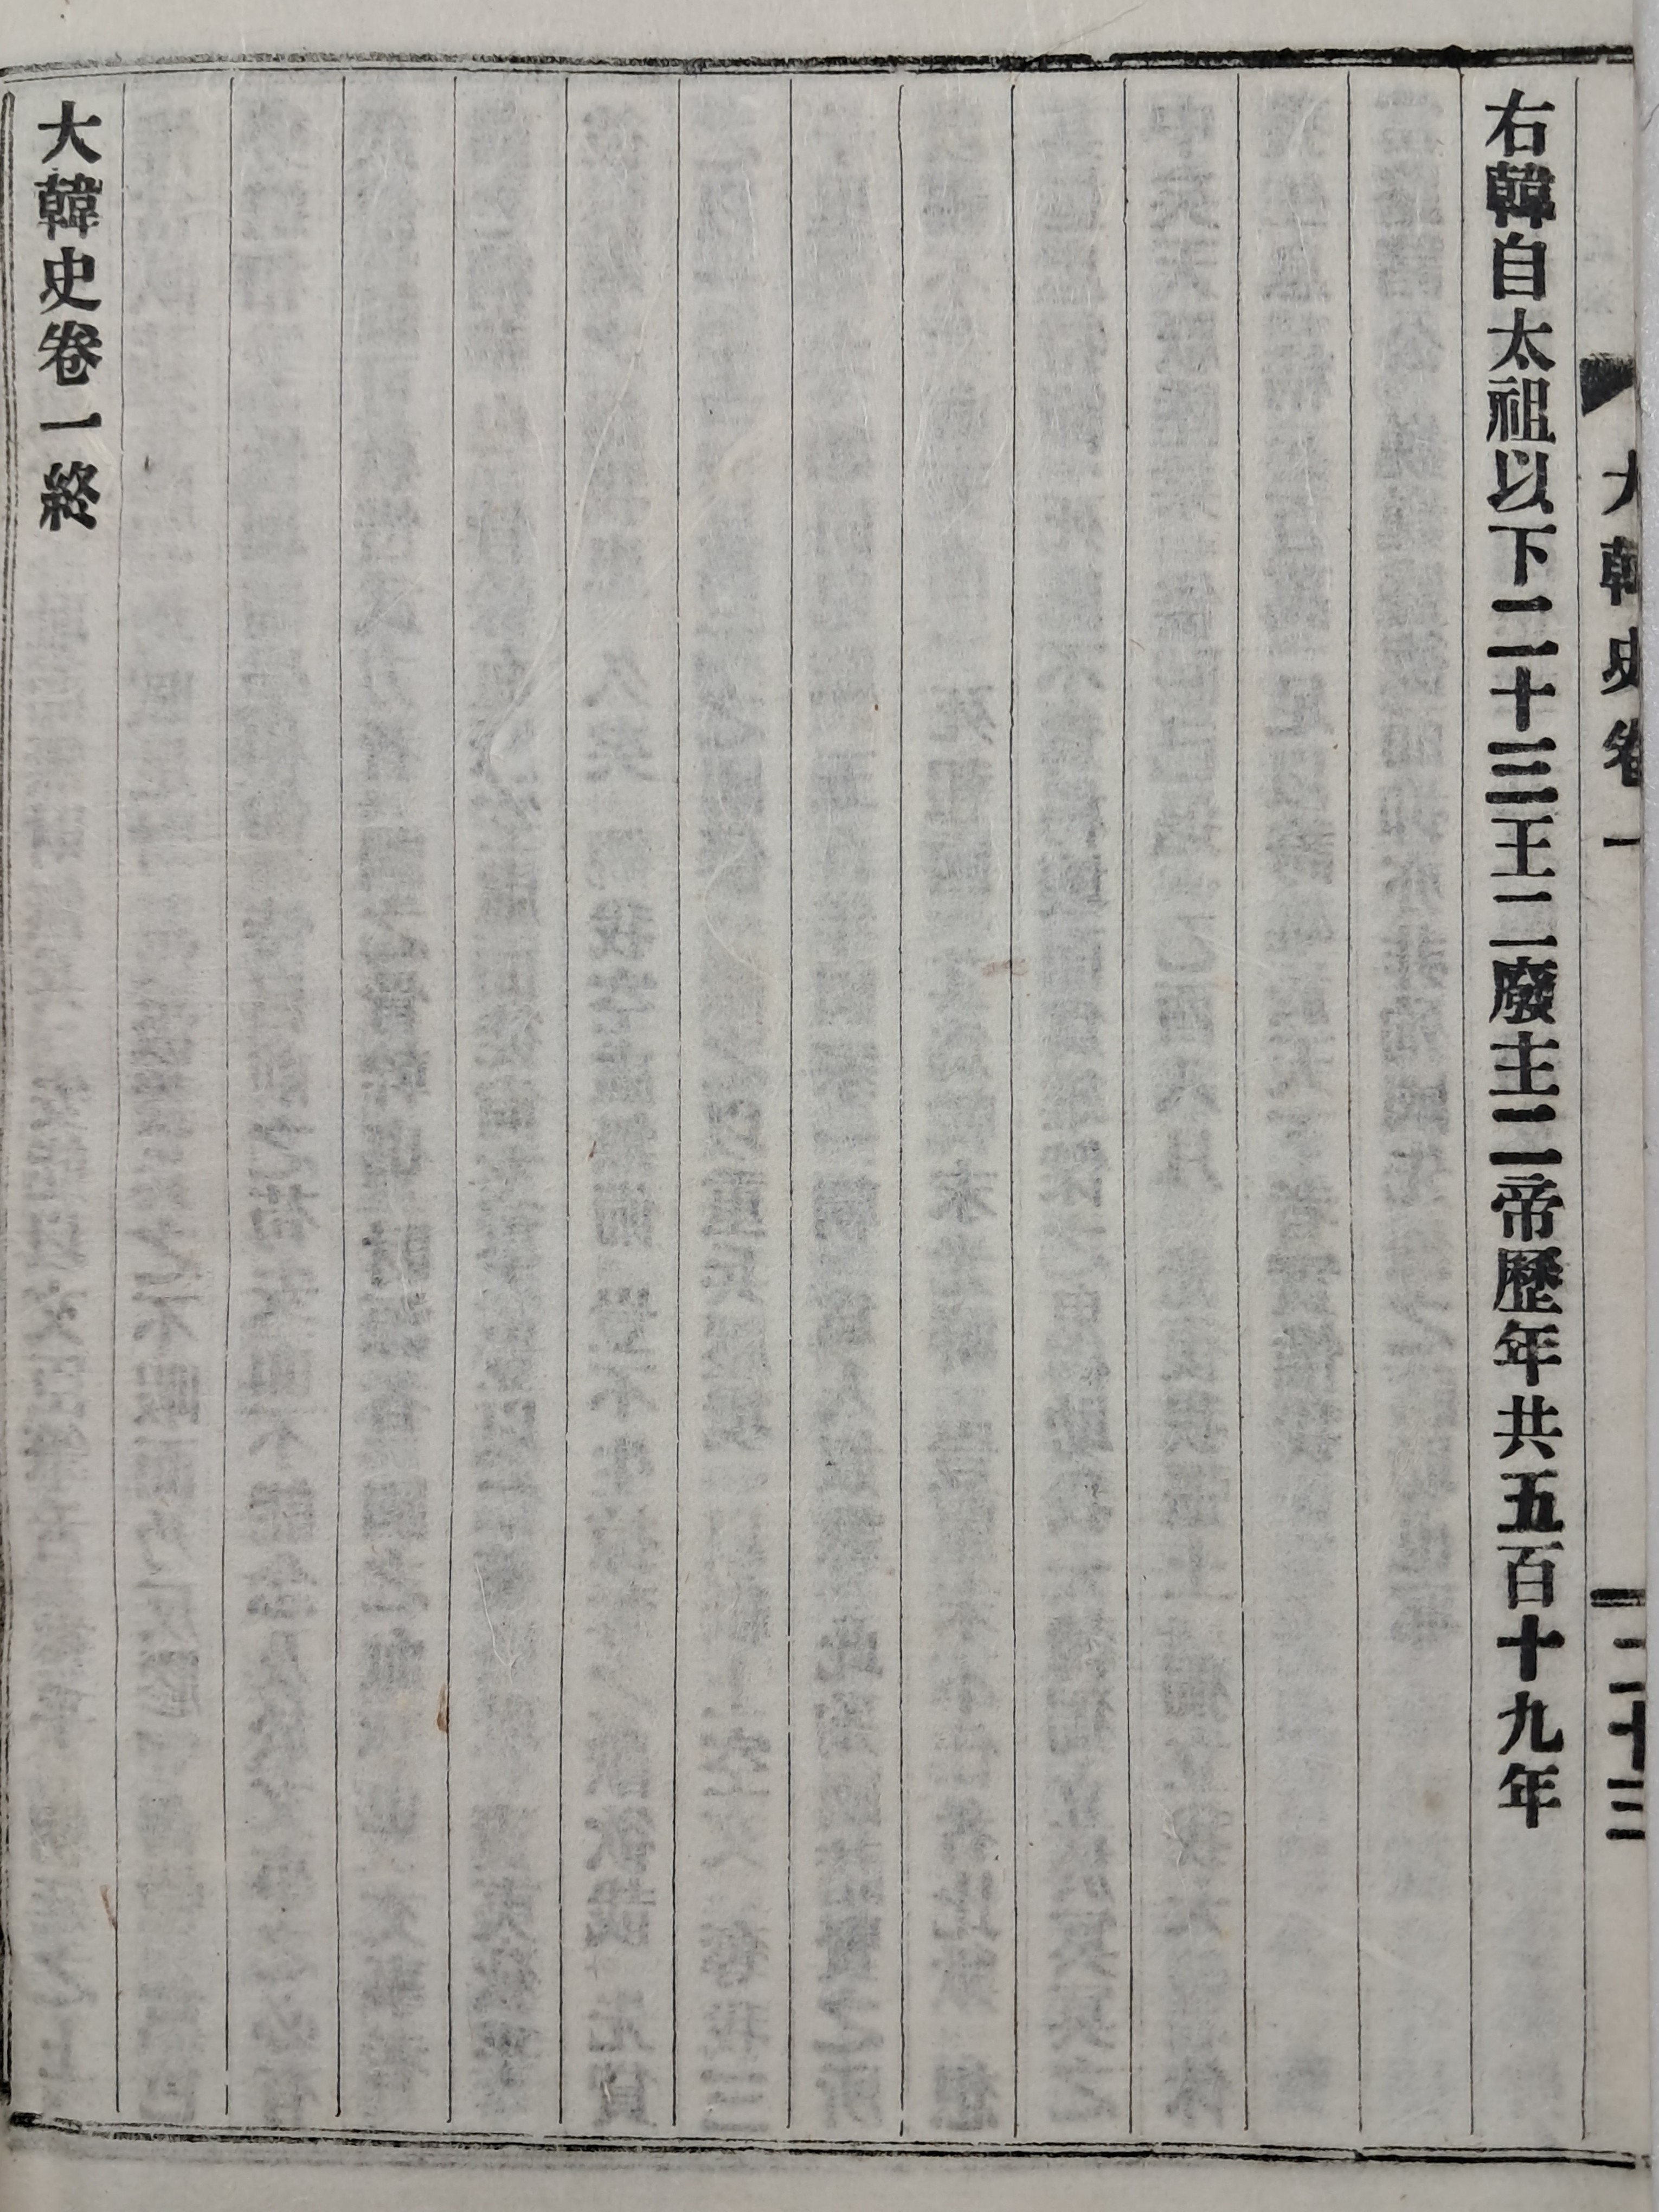 大韓史卷一
二十三
右韓自太祖以下二十三王二廢主二帝歷年共五百十九年
大韓史卷一終